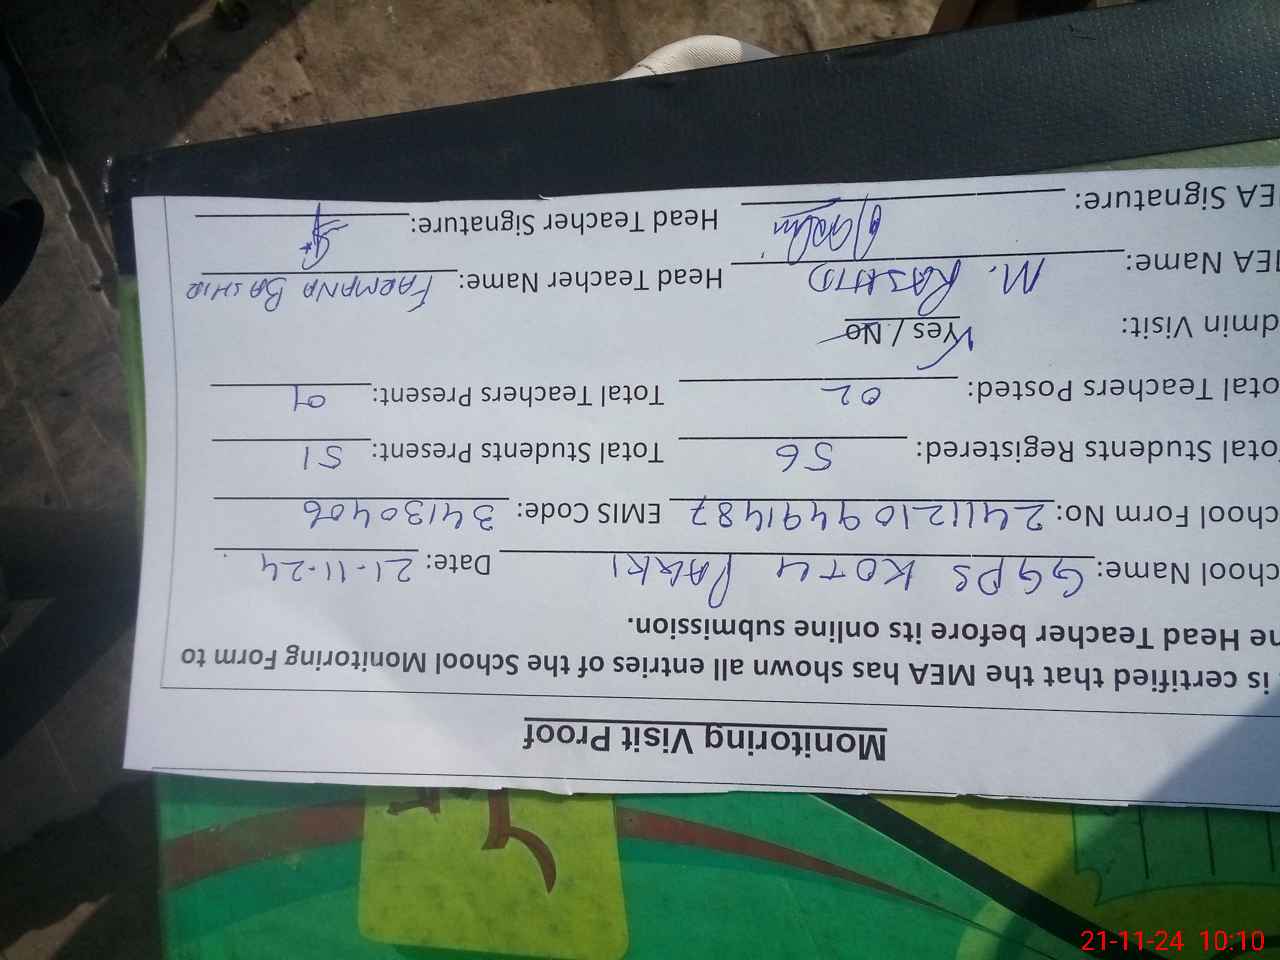 Monitoring Visit Proof
is certified that the MEA has shown all entries of the School Monitoring Form to
he Head Teacher before its online submission.
chool Name: GGPS KOTLI PAKKI Date: 21-11-24
chool Form No: 241121094491487 EMIS Code: 34130406
otal Students Registered: 56 Total Students Present: 51
otal Teachers Posted: 02 Total Teachers Present: 01
dmin Visit: Yes / No
EA Name: M. RASHID Head Teacher Name: FARMANA BASHIR
EA Signature: Head Teacher Signature:
21-11-24 10:10